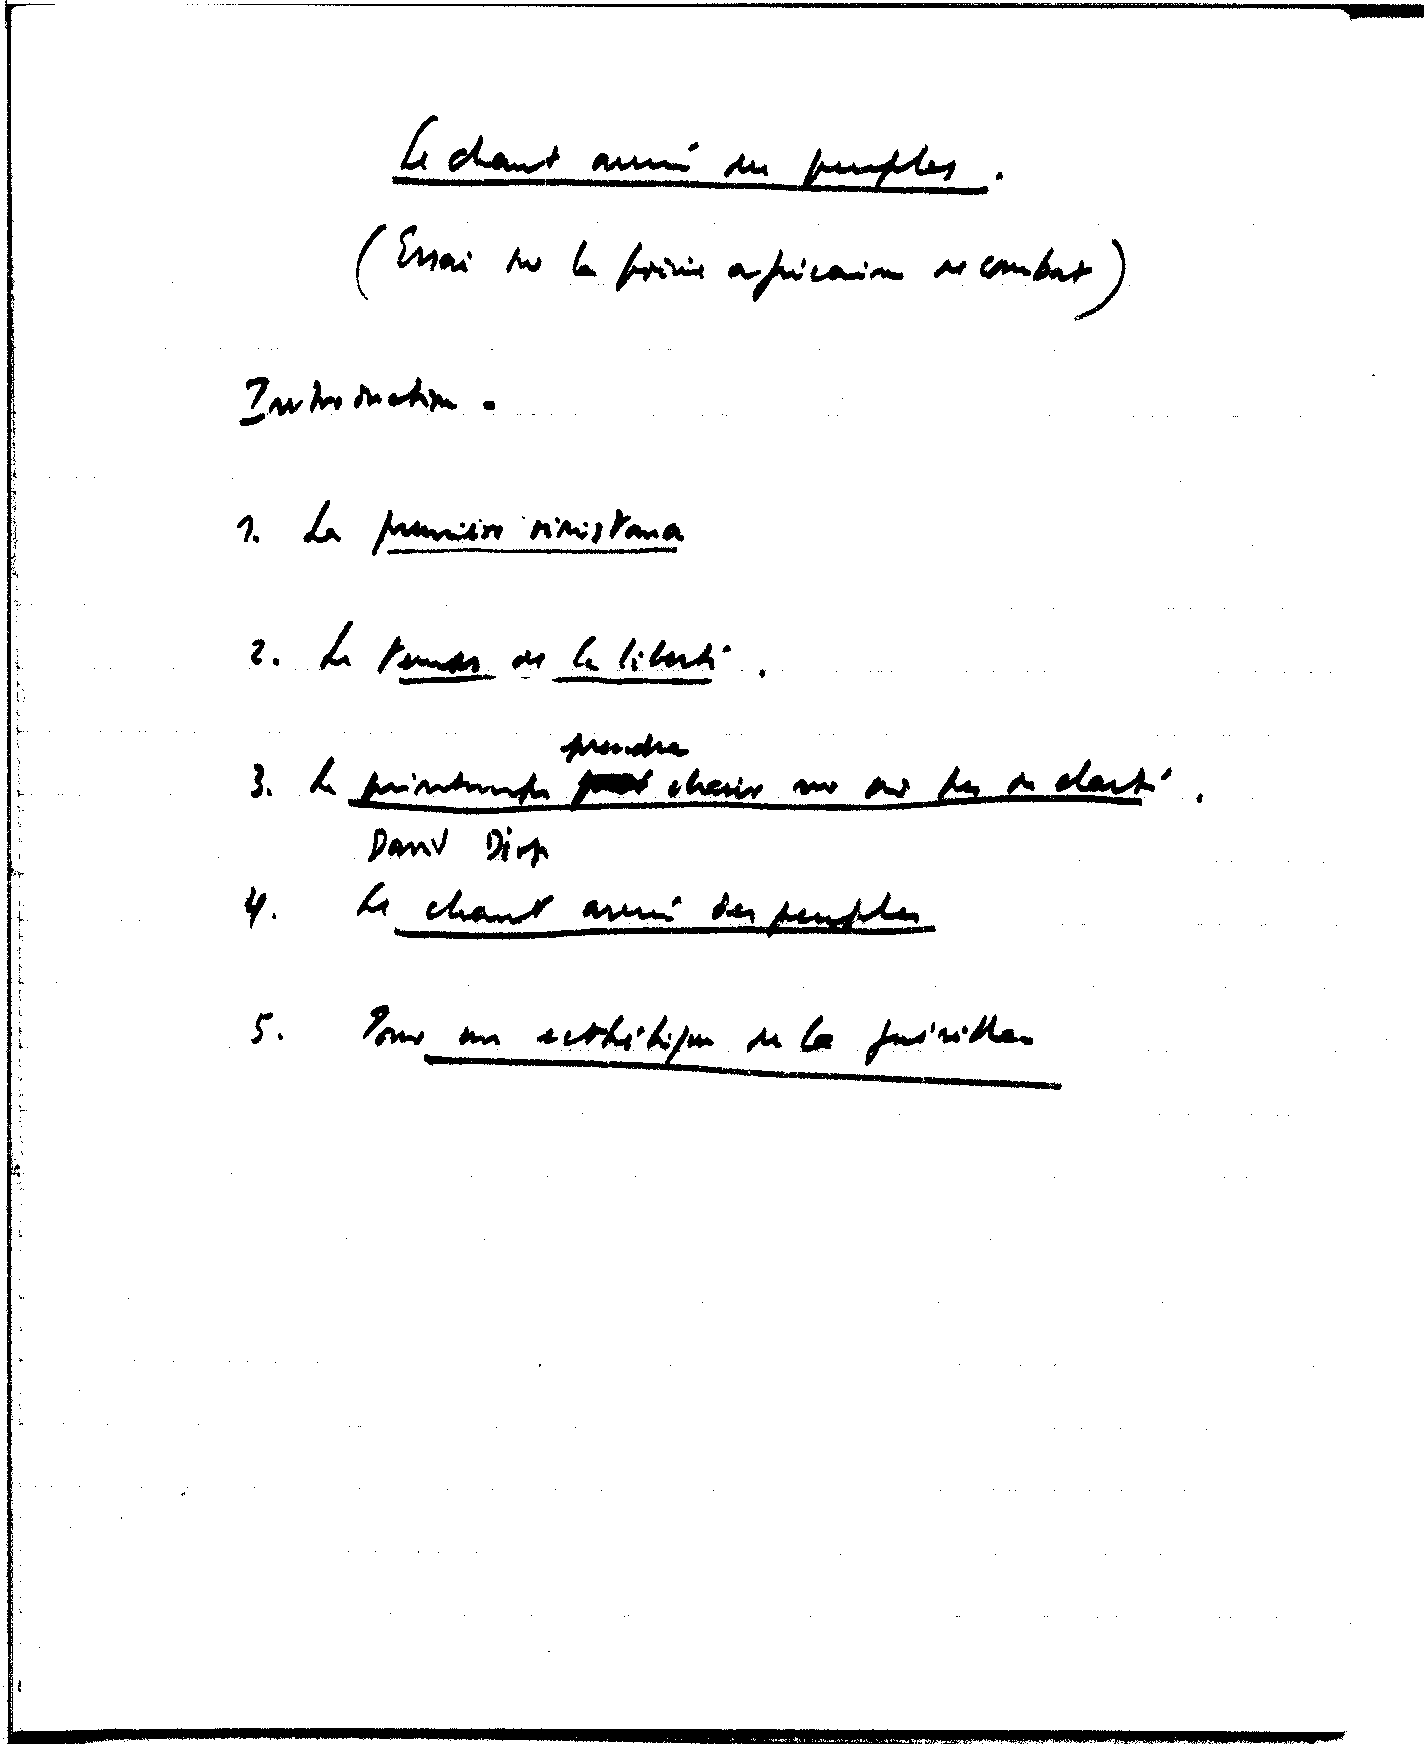 Le chant armé des peuples.
(Essai sur la poésie africaine de combat)
Introduction.
1. La première résistance
2. Le temps de la liberté.
prendra
3. Le printemps chair sur nos pas de clarté.
David Diop
4. Le chant armé des peuples
5. Pour une esthétique de la guérilla